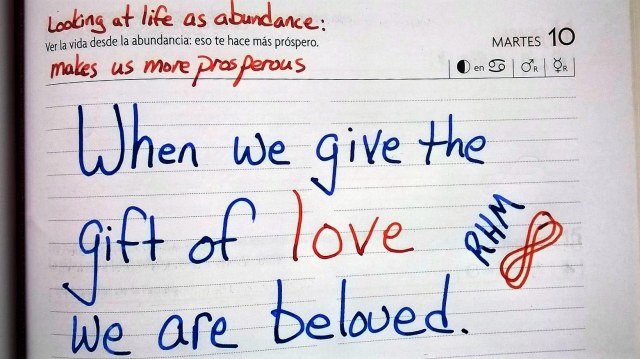 Looking at life as abundance:
Ver la vida desde la abundancia: eso te hace más próspero.
makes us more prosperous
MARTES 10
en ♋ | ♂R | ☿R
When we give the
gift of love
RHM
we are beloved.